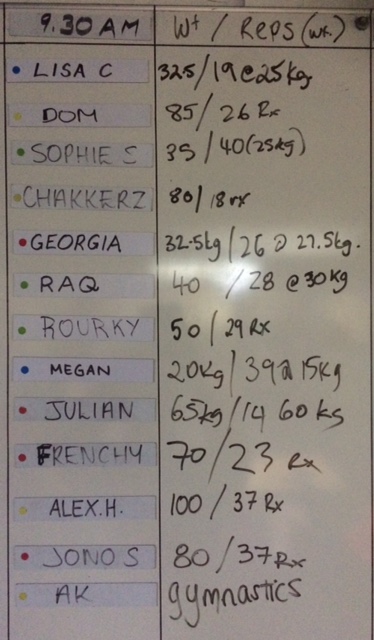 9.30 AM Wt / Reps (wk.)
LISA C 32.5 / 19 @ 25kg
DOM 85 / 26 Rx
SOPHIE S 35 / 40 (25kg)
CHAKKERZ 80 / 18 rx
GEORGIA 32.5kg / 26 @ 27.5kg.
RAQ 40 / 28 @ 30kg
ROURKY 50 / 29 Rx
MEGAN 20kg / 39 @ 15kg
JULIAN 65kg / 14 60 kg
FRENCHY 70 / 23 Rx
ALEX.H. 100 / 37 Rx
JONO S 80 / 37 Rx
AK gymnastics